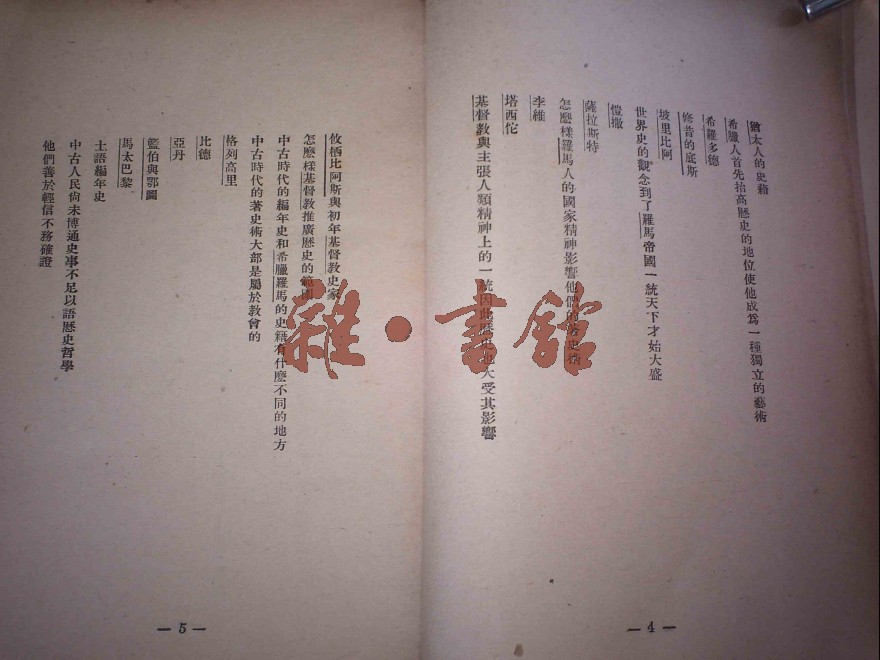 猶太人的史籍
希臘人首先抬高歷史的地位使他成爲一種獨立的藝術
希羅多德
修昔的底斯
坡里比阿
世界史的觀念到了羅馬帝國一統天下才始大盛
愷撒
薩拉斯特
怎麼樣羅馬人的國家精神影響他們的著史術
李維
塔西佗
基督教與主張人類精神上的一統因此歷史大受其影響
— 4 —
攸栖比阿斯與初年基督教史家
怎麼樣基督教推廣歷史的範圍
中古時代的編年史和希臘羅馬的史籍有什麼不同的地方
中古時代的著史術大部是屬於教會的
格列高里
比德
亞丹
籃伯與鄂圖
馬太巴黎
土語編年史
中古人民尙未博通史事不足以語歷史哲學
他們善於輕信不務確證
— 5 —
雜·書館